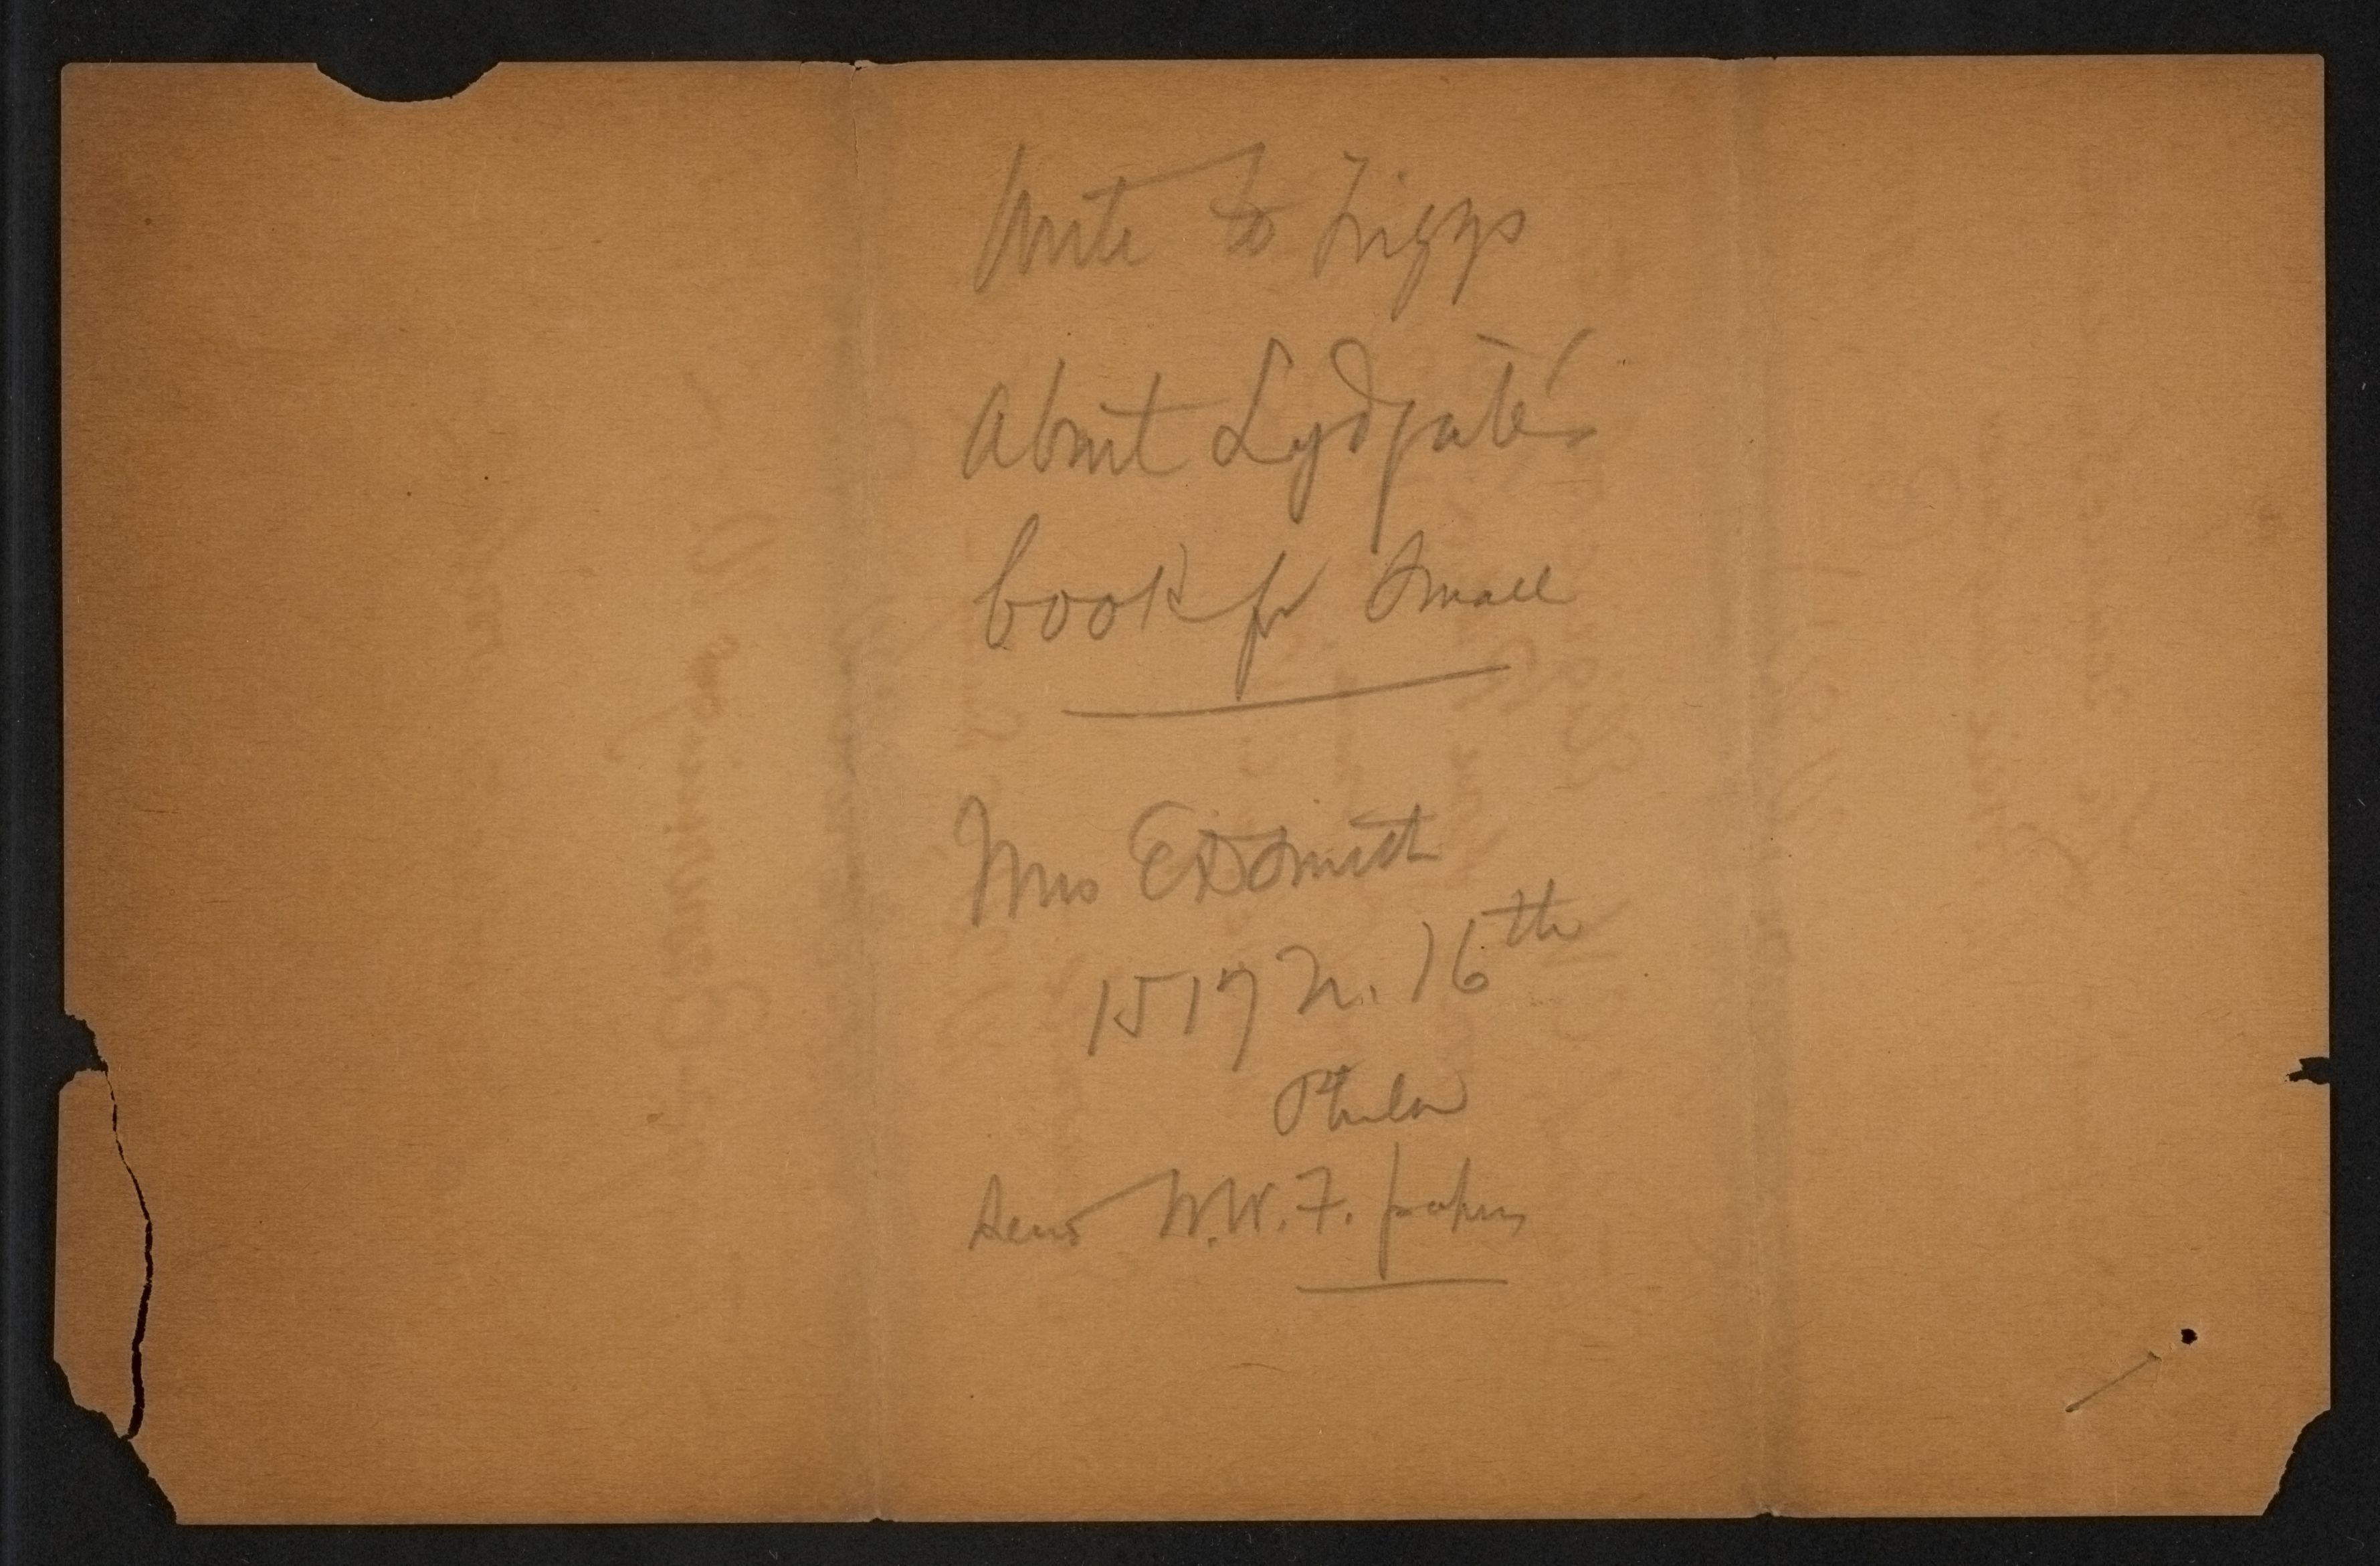 Write to Triggs
About Lydgate's
book for Small
Mrs E D Smith
1517 N. 16th
Phila
Send W.W.F. papers